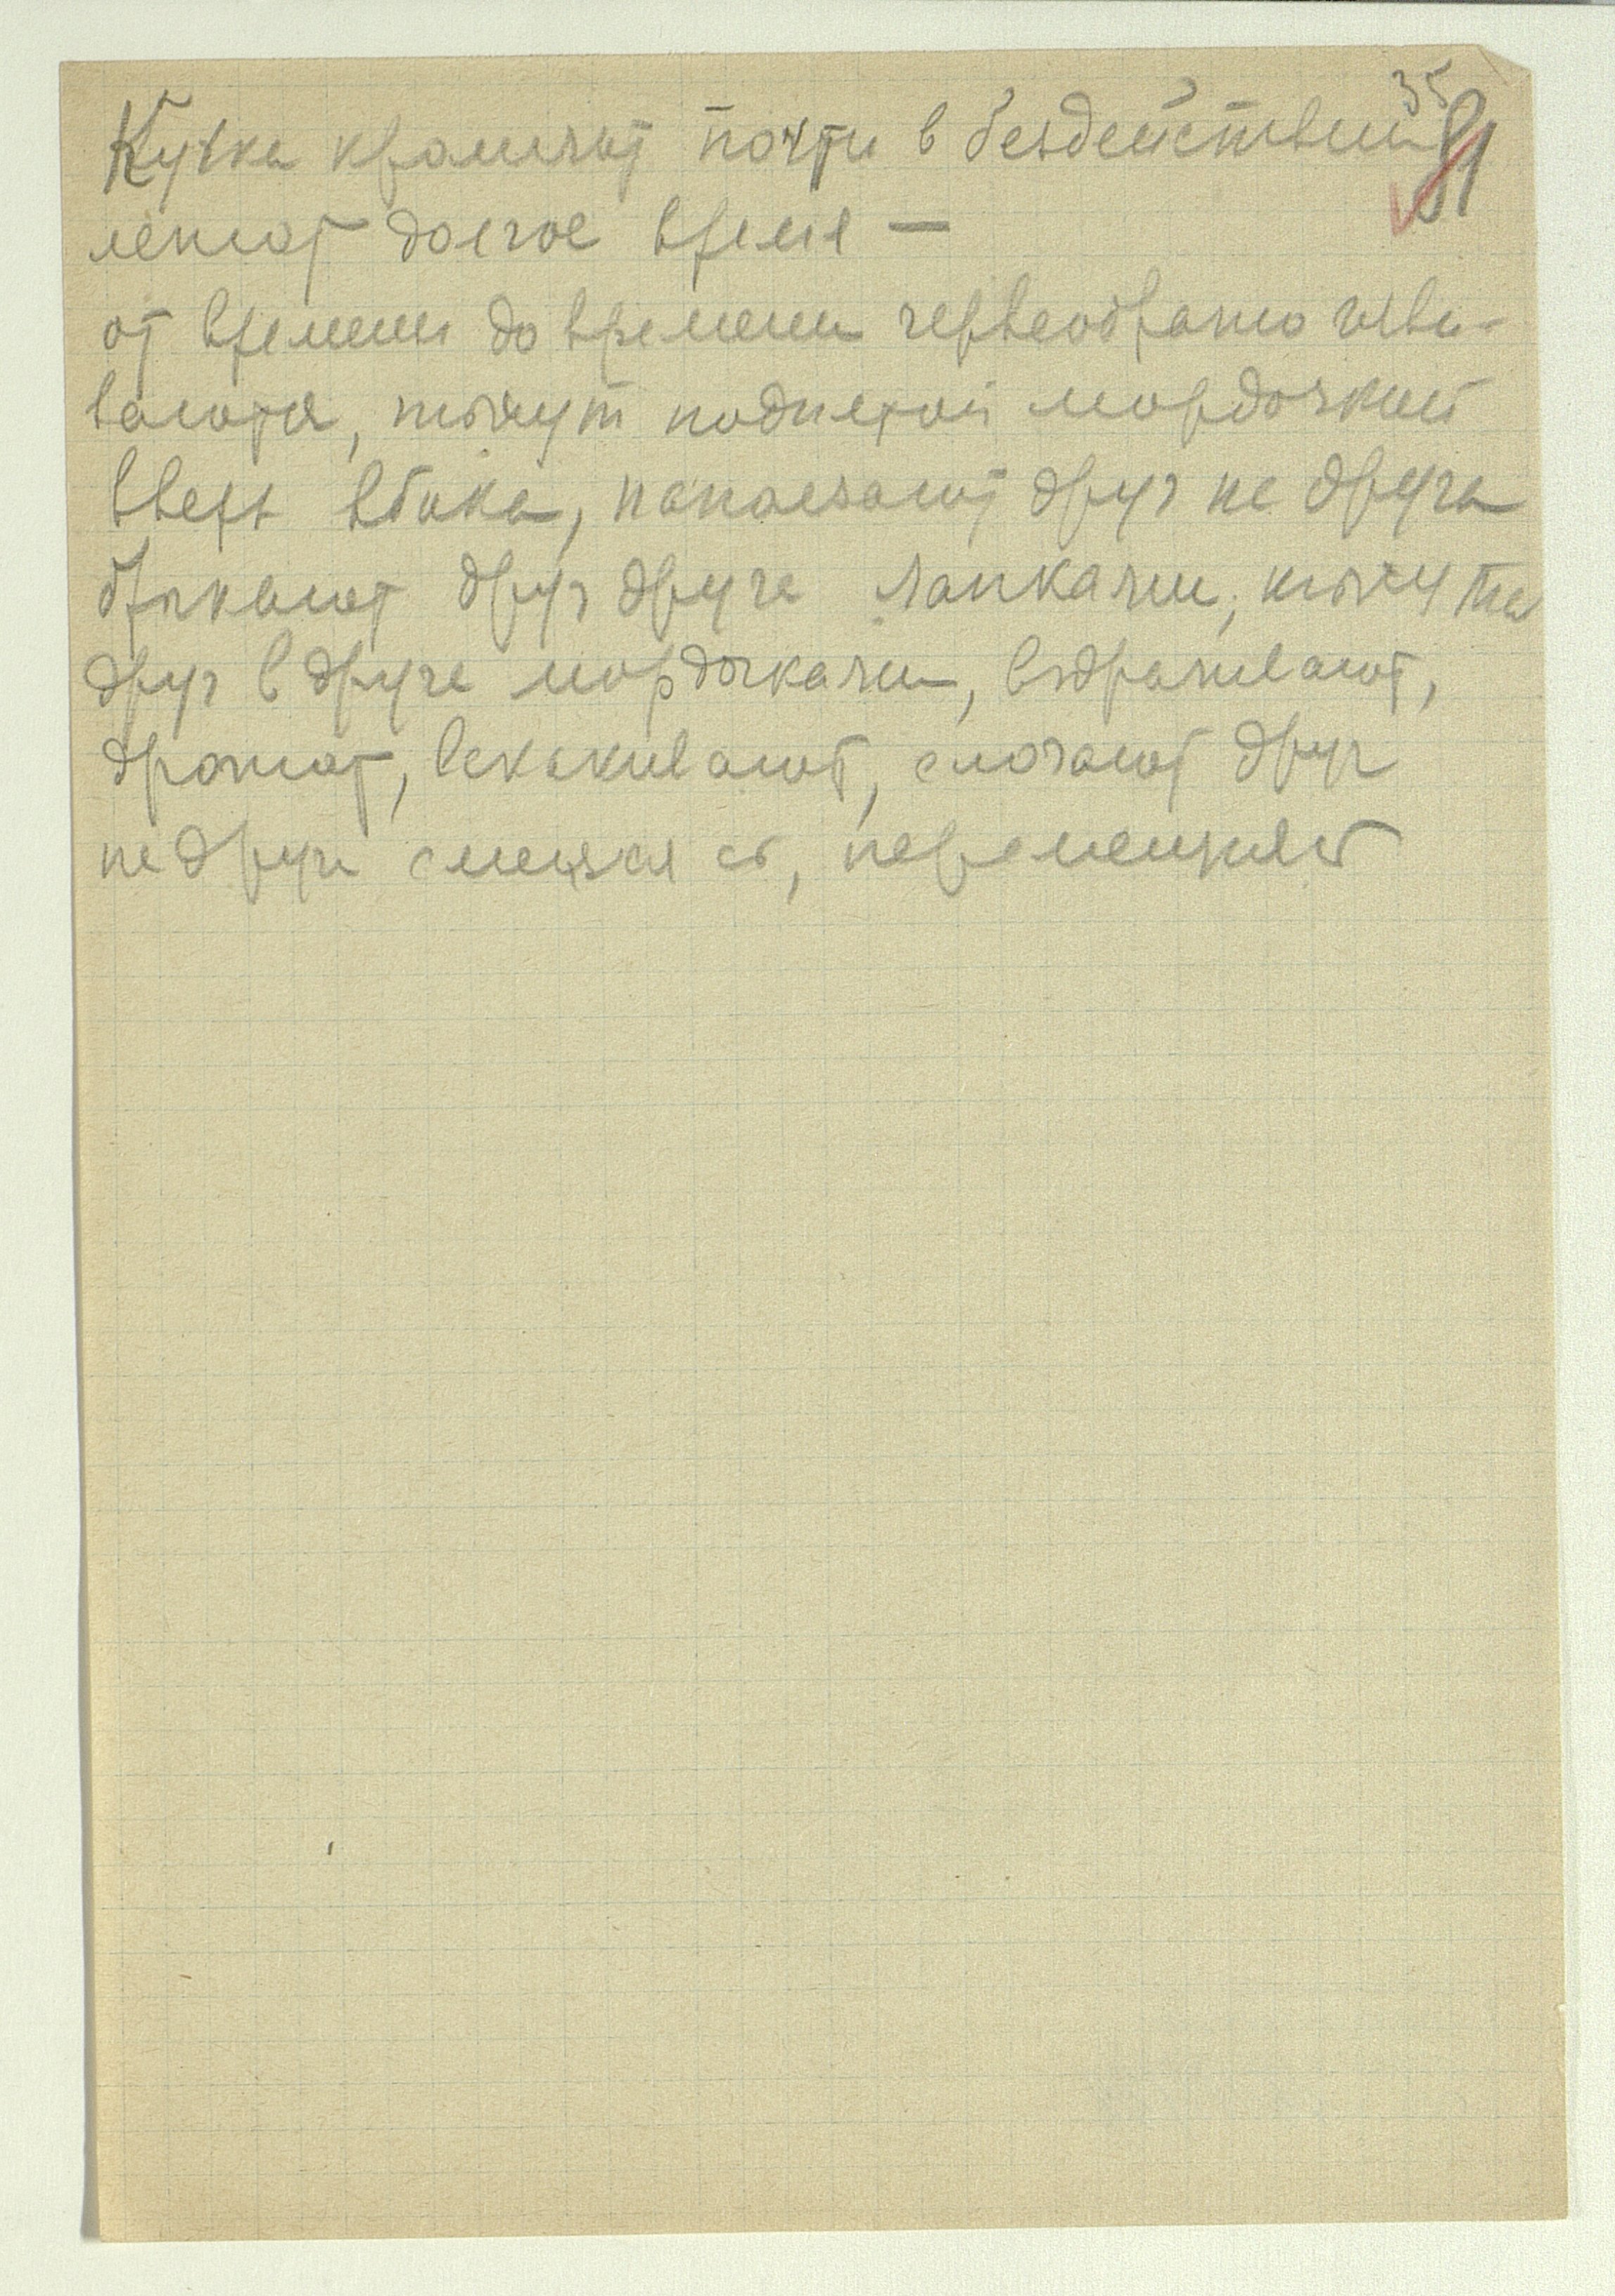 35
81
Кучка крольчат почти в бездействии
лежат долгое время —
от времени до времени червеобразно изви-
ваются, тычут поднятой мордочкой
вверх вбока, наползают друг на друга
брыкают друг друга лапками, тычутся
друг в друга мордочками, вздрагивают,
дрожат, вскакивают,
на друга смещаясь, перемещаясь